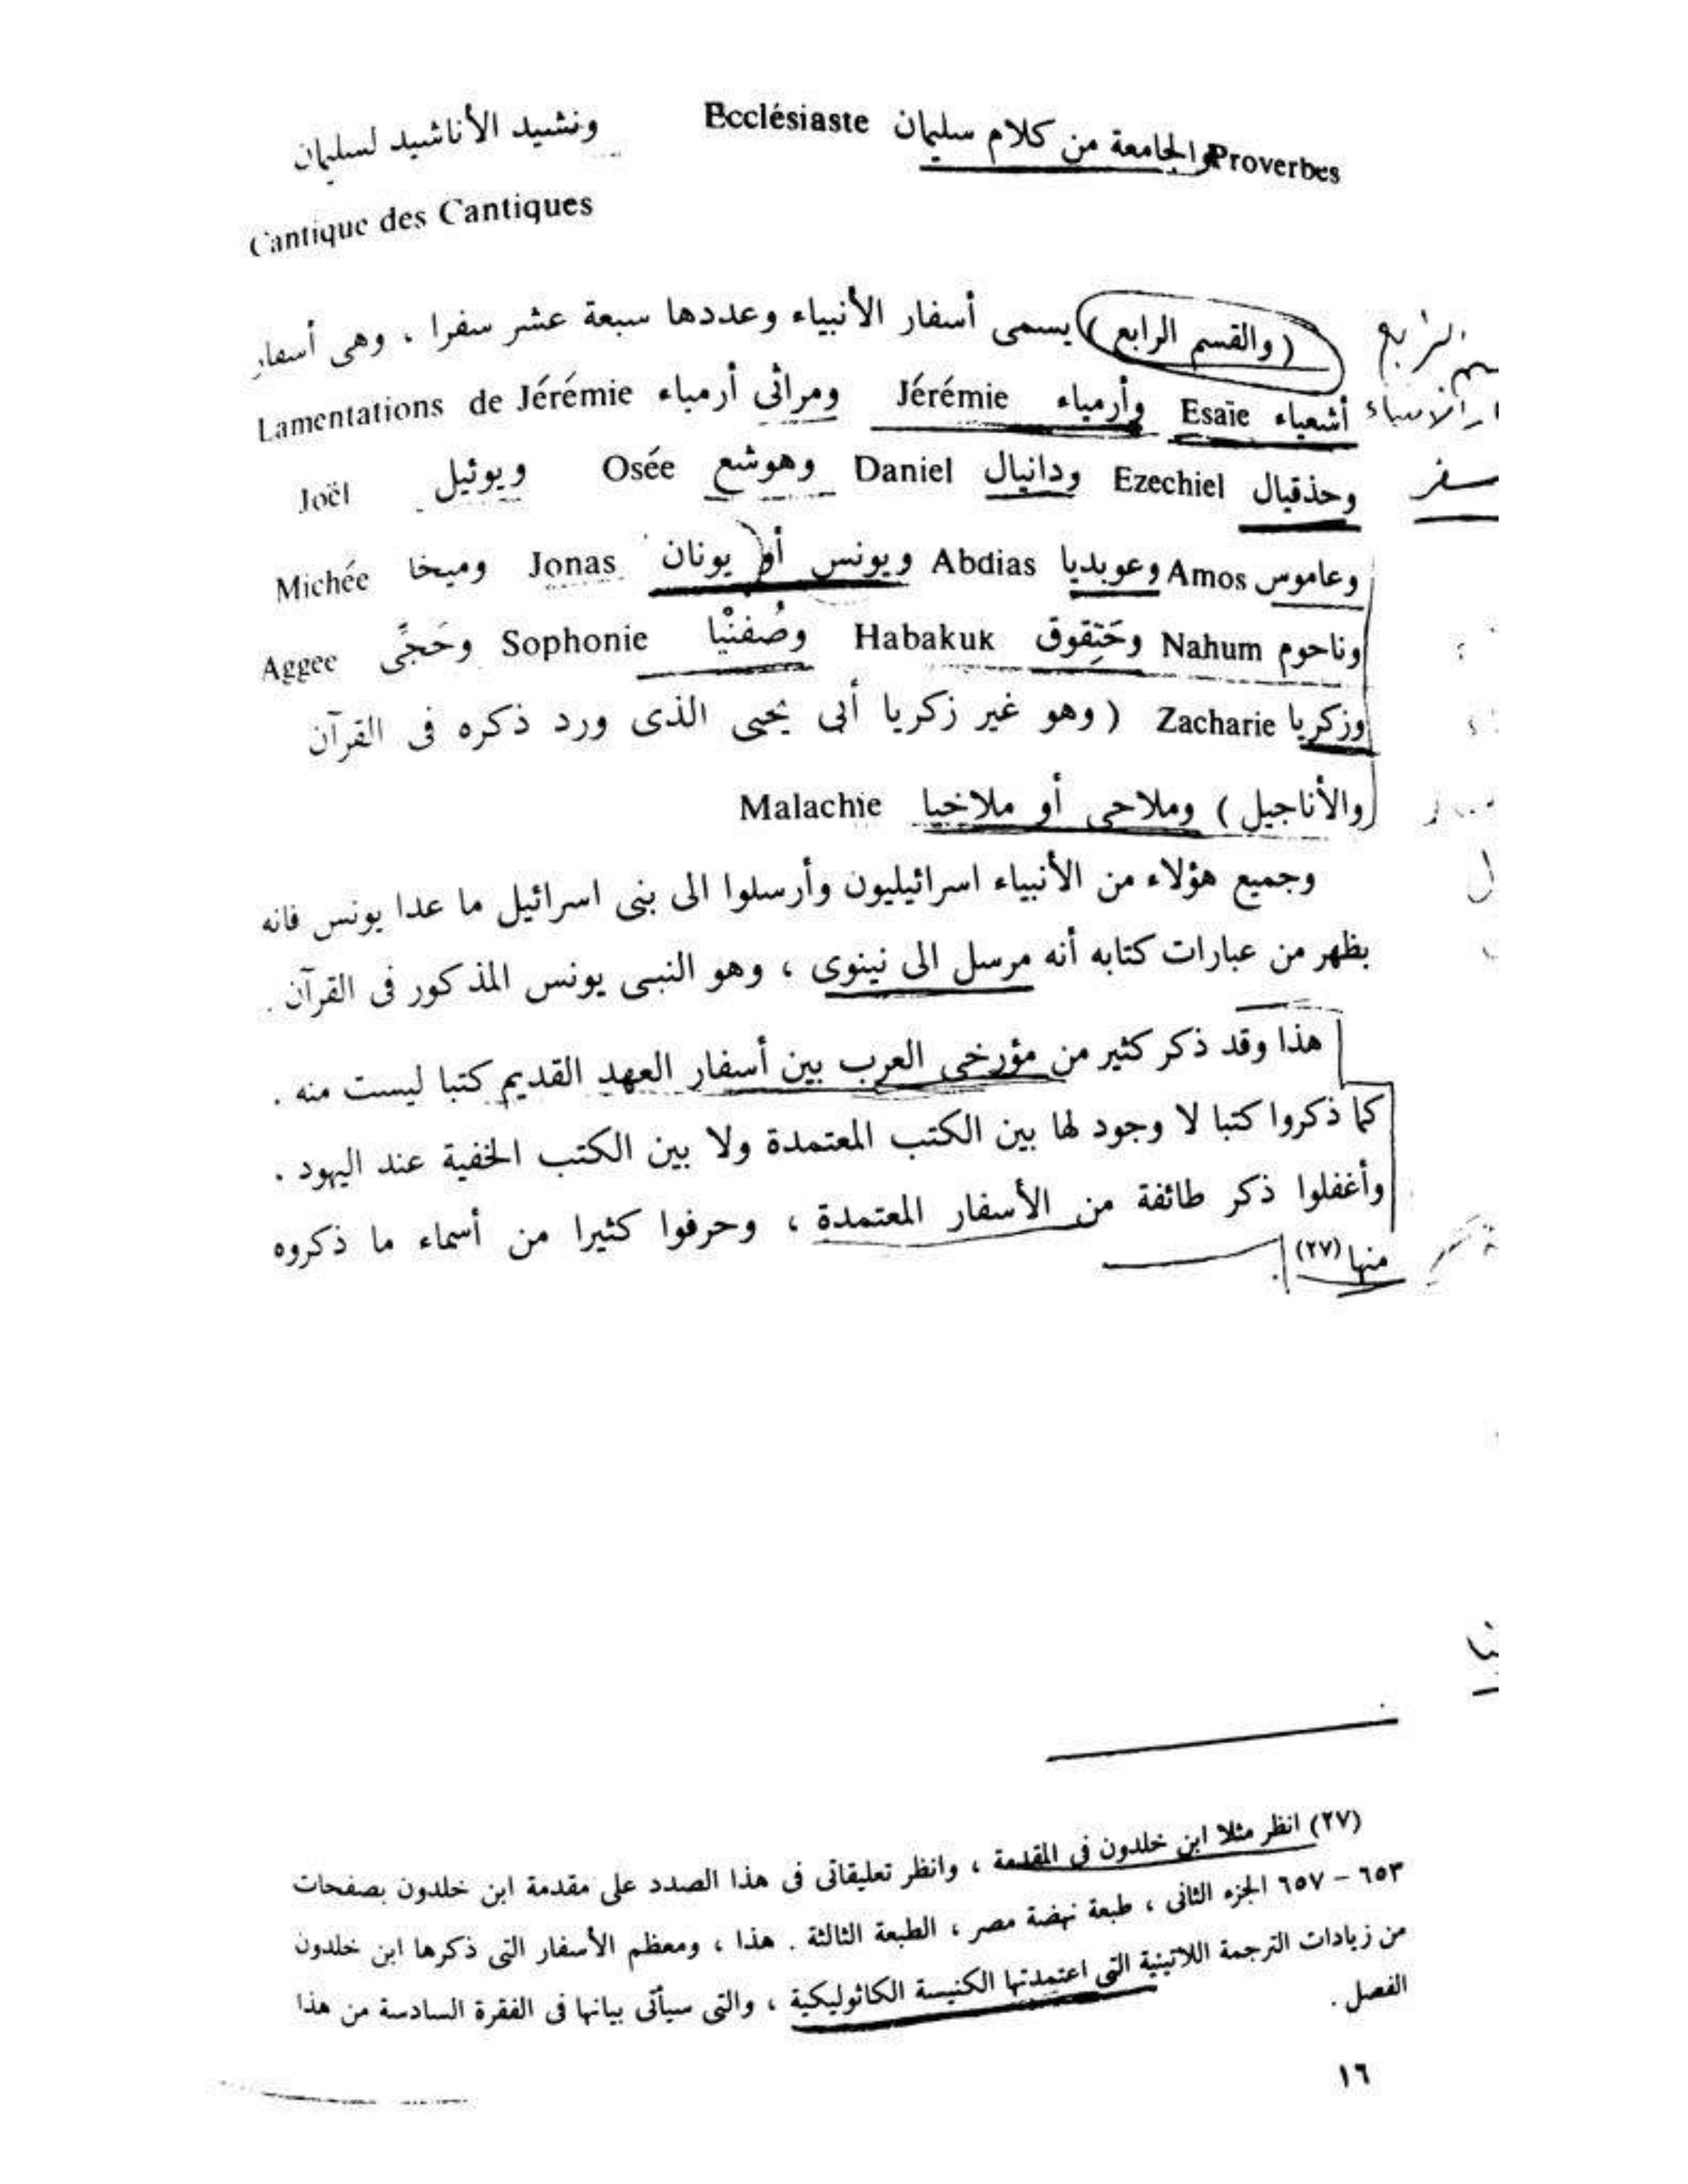 Proverbes والجامعة من كلام سليمان Ecclésiaste ونشيد الأناشيد لسليمان
Cantique des Cantiques
(والقسم الرابع) يسمى أسفار الأنبياء وعددها سبعة عشر سفرا ، وهى أسفار
أشعياء Esaïe وأرمياء Jérémie ومراثى أرمياء Lamentations de Jérémie
وحذقيال Ezechiel ودانيال Daniel وهوشع Osée ويوئيل Joël
وعاموس Amos وعوبديا Abdias ويونس أو يونان Jonas وميخا Michée
وناحوم Nahum وحَبِقوق Habakuk وصُفنْيا Sophonie وحَجًى Aggee
وزكريا Zacharie ( وهو غير زكريا أبى يحيى الذى ورد ذكره فى القرآن
والأناجيل ) وملاحى أو ملاخيا Malachie
وجميع هؤلاء من الأنبياء اسرائيليون وأرسلوا الى بنى اسرائيل ما عدا يونس فانه
يظهر من عبارات كتابه أنه مرسل الى نينوى ، وهو النبى يونس المذكور فى القرآن .
هذا وقد ذكر كثير من مؤرخى العرب بين أسفار العهد القديم كتبا ليست منه .
كما ذكروا كتبا لا وجود لها بين الكتب المعتمدة ولا بين الكتب الخفية عند اليهود .
وأغفلوا ذكر طائفة من الأسفار المعتمدة ، وحرفوا كثيرا من أسماء ما ذكروه
منها (٢٧) .
الرابع
سفر
(٢٧) انظر مثلا ابن خلدون فى المقدمة ، وانظر تعليقاتى فى هذا الصدد على مقدمة ابن خلدون بصفحات
٦٥٣ – ٦٥٧ الجزء الثانى ، طبعة نهضة مصر ، الطبعة الثالثة . هذا ، ومعظم الأسفار التى ذكرها ابن خلدون
من زيادات الترجمة اللاتينية التى اعتمدتها الكنيسة الكاثوليكية ، والتى سيأتى بيانها فى الفقرة السادسة من هذا
الفصل .
١٦